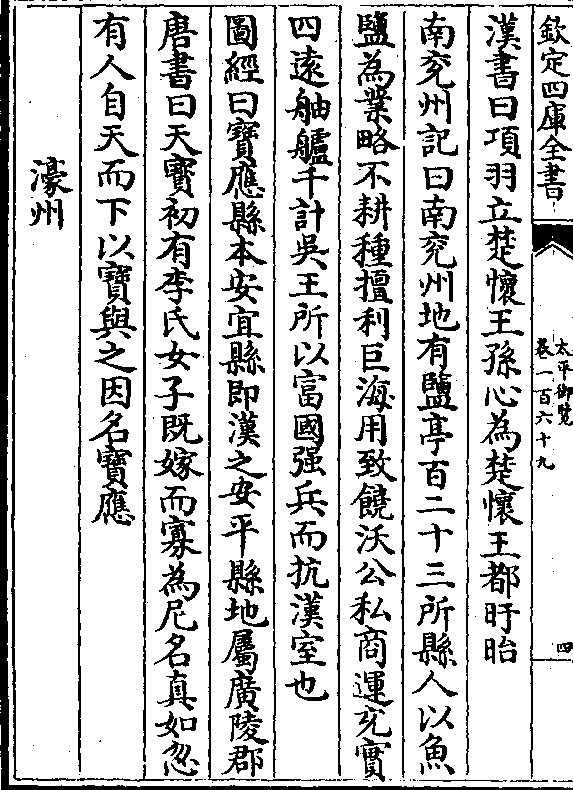 欽定四庫全書
太平御覽
卷一百六十九
四
漢書曰項羽立楚懷王孫心為楚懷王都盱眙
南兖州記曰南兖州地有鹽亭百二十三所縣人以魚
鹽為業略不耕種擅利巨海用致饒沃公私商運充實
四逺舳艫千計吳王所以富國强兵而抗漢室也
圖經曰寶應縣本安宜縣即漢之安平縣地屬廣陵郡
唐書曰天寳初有李氏女子既嫁而寡為尼名真如忽
有人自天而下以寶與之因名寶應
濠州